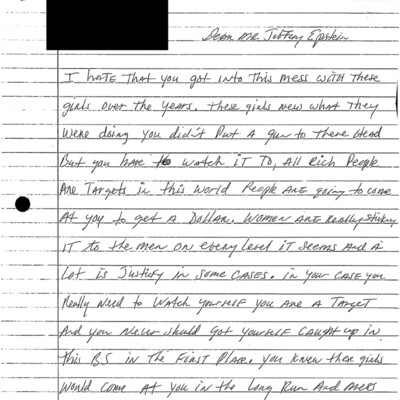 Dear Mr Jeffrey Epstein
I HATE THAT you got into This mess with these
girls over the years. these girls new what they
were doing you didn't Put a gun to there Head
But you have to watch iT TO, All Rich People
Are Targets in this world People Are going to come
At you to get a Dollar. Women ARE Really sticking
IT to the men on every level it seems And a
Lot is Justify in some cases. in your case you
Really Need to watch yourself you are a Target
And you Never should got yourself caught up in
this BS in the First Place. you knew these girls
would come At you in the Long Run And